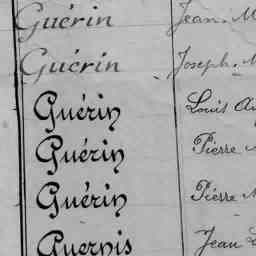 Guérin Jean M
Guérin Joseph M
Guérin Louis Au
Guérin Pierre M
Guérin Pierre M
Guernis Jean